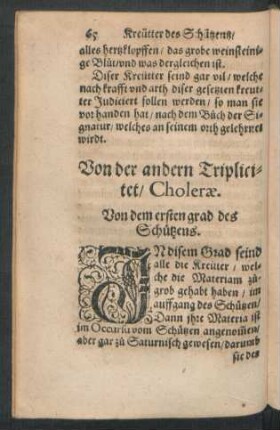 65 Kreütter des Schützens/
alles hertzklopffen / das grobe weinsteini-
ge Blüt/vnd was dergleichen ist.
Diser Kreütter seind gar vil / welche
nach krafft vnd arth diser gesetzten kreut-
ter Judiciert sollen werden / so man sie
vorhanden hat / nach dem Büch der Si-
gnatur / welches an seinem orth gelehrnet
wirdt.
Von der andern Triplici-
tet / Choleræ.
Von dem ersten grad des
Schützens.
IN disem Grad seind
alle die Kreuter / wel-
che die Materiam zü-
grob gehabt haben / im
auffgang des Schützen /
Dann ihre Materia ist
im Occasu vom Schützen angenommen /
aber gar zü Saturnisch gewesen / darumb
sie den